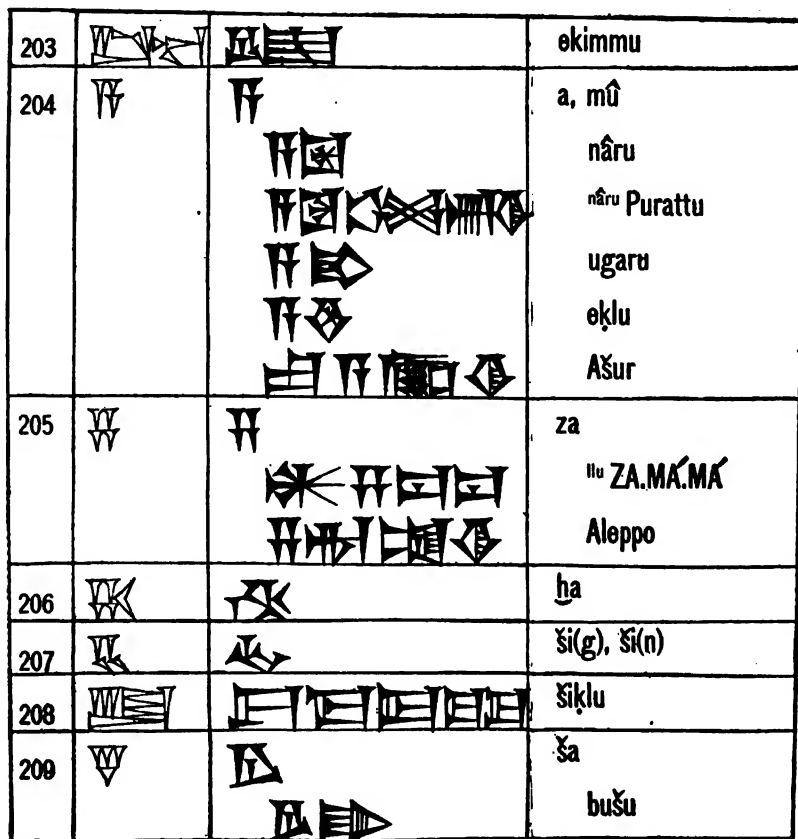 203 ekimmu
204 𒀀 𒀀 a, mû
𒀀𒇉 nâru
𒀀𒇉𒌓𒄒𒉣𒆠 nâru Purattu
ugaru
𒀀𒊮 eḳlu
Ašur
205 𒍝 𒍝 za
𒀭𒍝𒂷𒂷 ilu ZA.MÁ.MÁ
Aleppo
206 𒄩 𒄩 ḫa
207 ši(g), ši(n)
208 šiḳlu
209 𒊭 ša
bušu